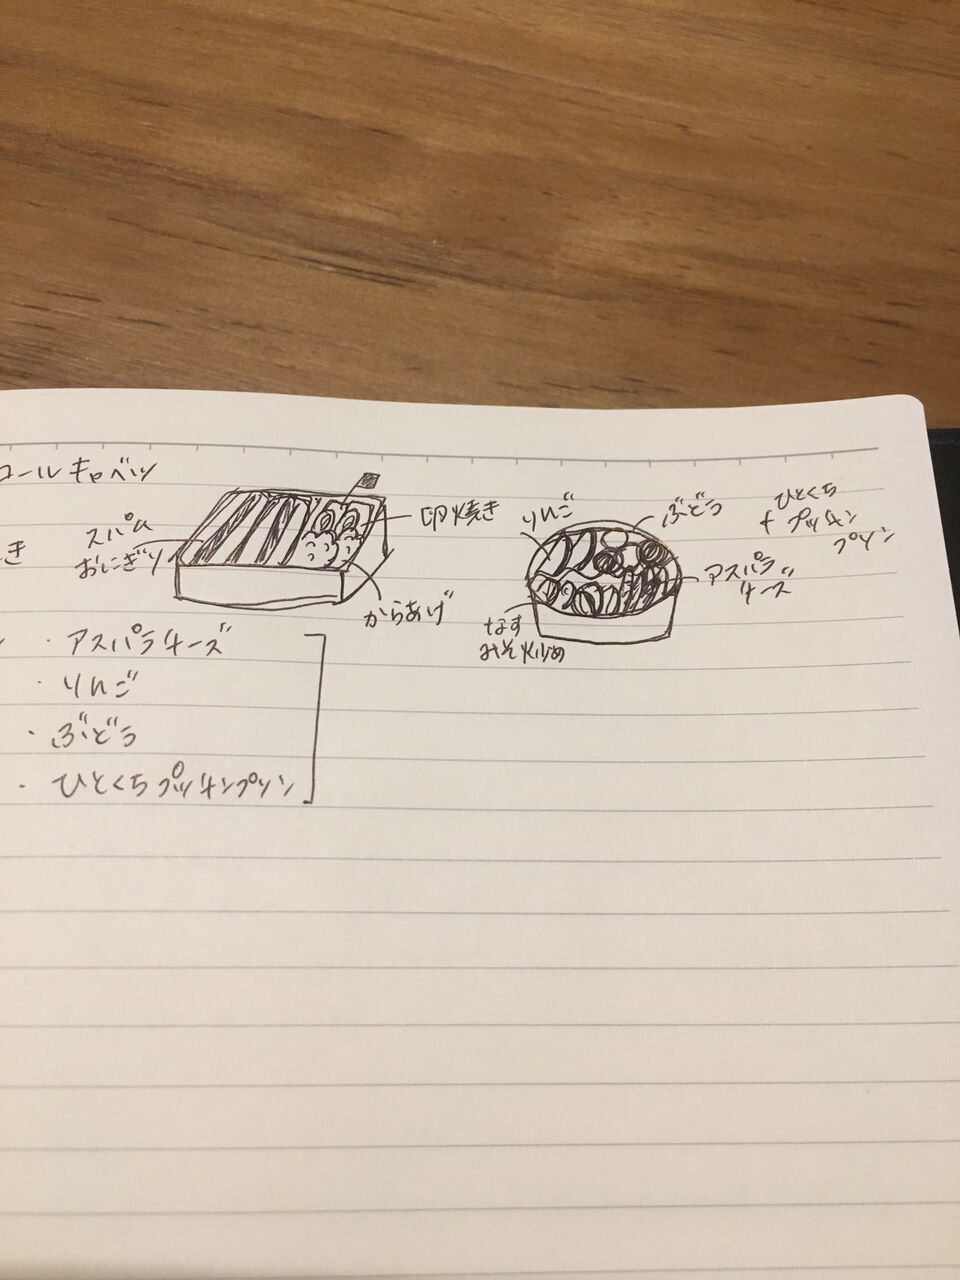 ロールキャベツ
き
スパム
おにぎり
卵焼き
からあげ
りんご
ぶどう
ひとくち
+ プッチン
プリン
アスパラ
チーズ
なす
みそ炒め
・アスパラチーズ
・りんご
・ぶどう
・ひとくちプッチンプリン